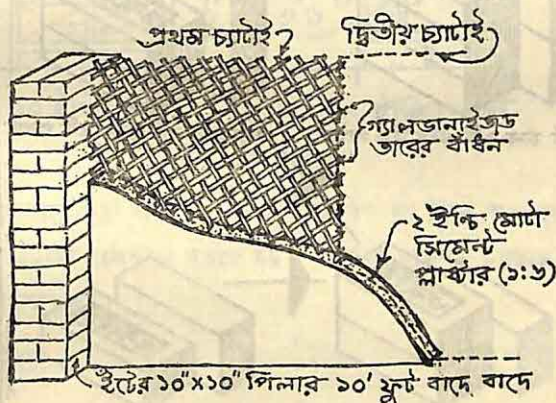 প্রথম চ্যাটাই
দ্বিতীয় চ্যাটাই
গ্যালভানাইজড
তারের বাঁধন
২ ইন্চি মোটা
সিমেন্ট
প্লাষ্টার (১:৬)
ইটের ১০"x১০" পিলার ১০' ফুট বাদে বাদে